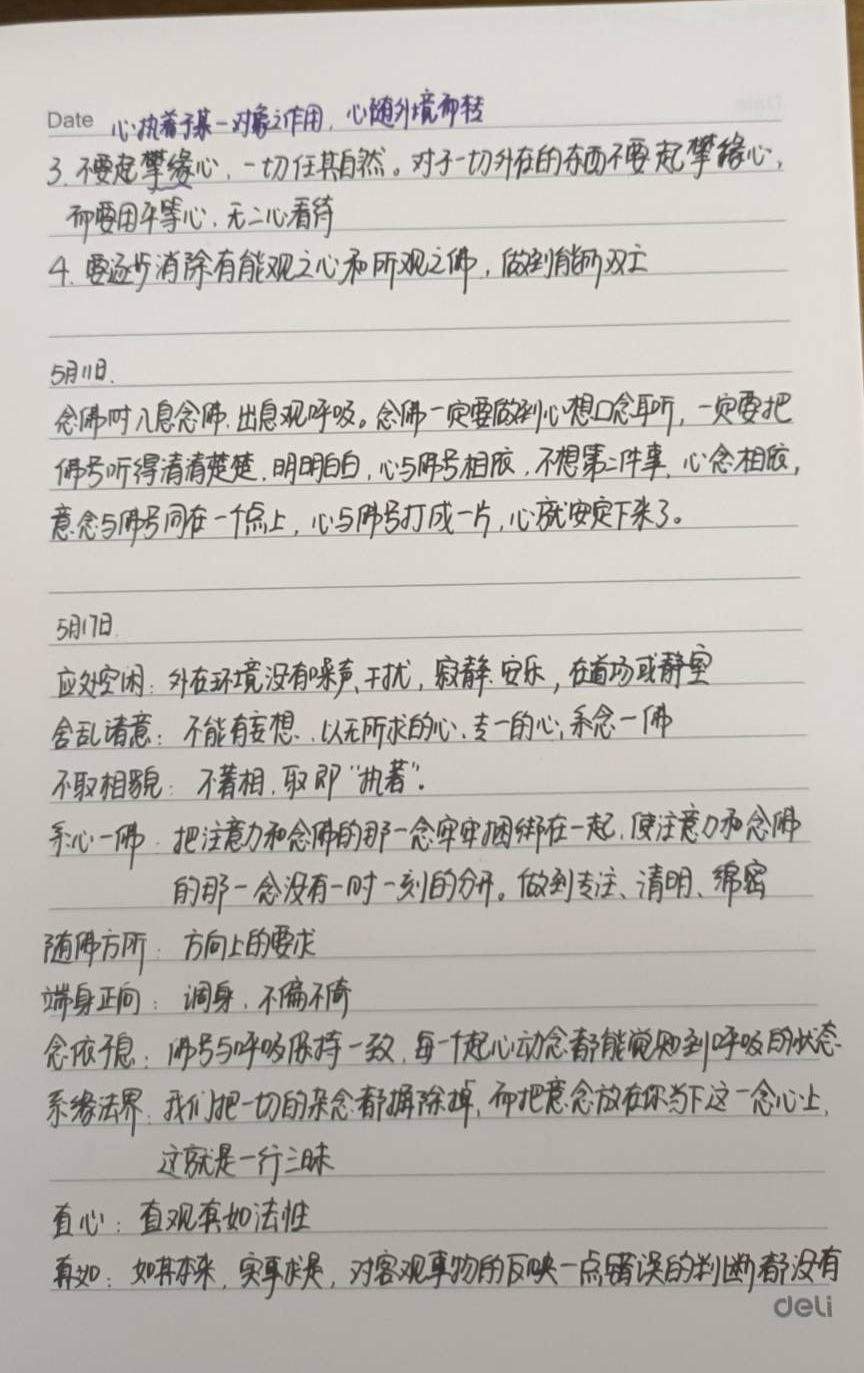 Date 心执着于某一对象之作用，心随外境而转
3. 不要起攀缘心，一切任其自然。对于一切外在的东西不要起攀缘心，
而要用平等心，无二心看待
4. 要逐步消除有能观之心和所观之佛，做到能所双亡
5月11日.
念佛时入息念佛，出息观呼吸。念佛一定要做到心想口念耳听，一定要把
佛号听得清清楚楚，明明白白，心与佛号相依，不想第二件事，心念相依，
意念与佛号同在一个点上，心与佛号打成一片，心就安定下来了。
5月17日.
应处空闲：外在环境没有噪声、干扰，寂静、安乐，在道场或静室
舍乱诸意：不能有妄想，以无所求的心、专一的心，系念一佛
不取相貌：不著相，取即“执著”。
系心一佛：把注意力和念佛的那一念牢牢捆绑在一起，使注意力和念佛
的那一念没有一时一刻的分开。做到专注、清明、绵密
随佛方所：方向上的要求
端身正向：调身，不偏不倚
念依于息：佛号与呼吸保持一致，每一个起心动念都能觉知到呼吸的状态
系缘法界：我们把一切的杂念都摒除掉，而把意念放在你当下这一念心上，
这就是一行三昧
直心：直观真如法性
真如：如其本来，实事求是，对客观事物的反映一点错误的判断都没有
deli